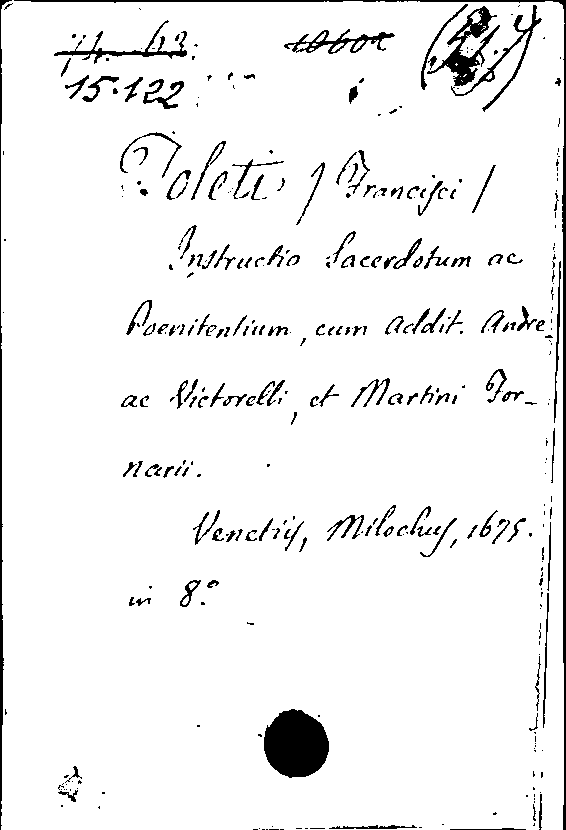 74. 63.
15.122
Toleti / Francisci /
Instructio Sacerdotum ac
Poenitentium, cum Addit. Andre-
ae Victorelli, et Martini For-
narii.
Venetiis, Milochus, 1675.
in 8.°